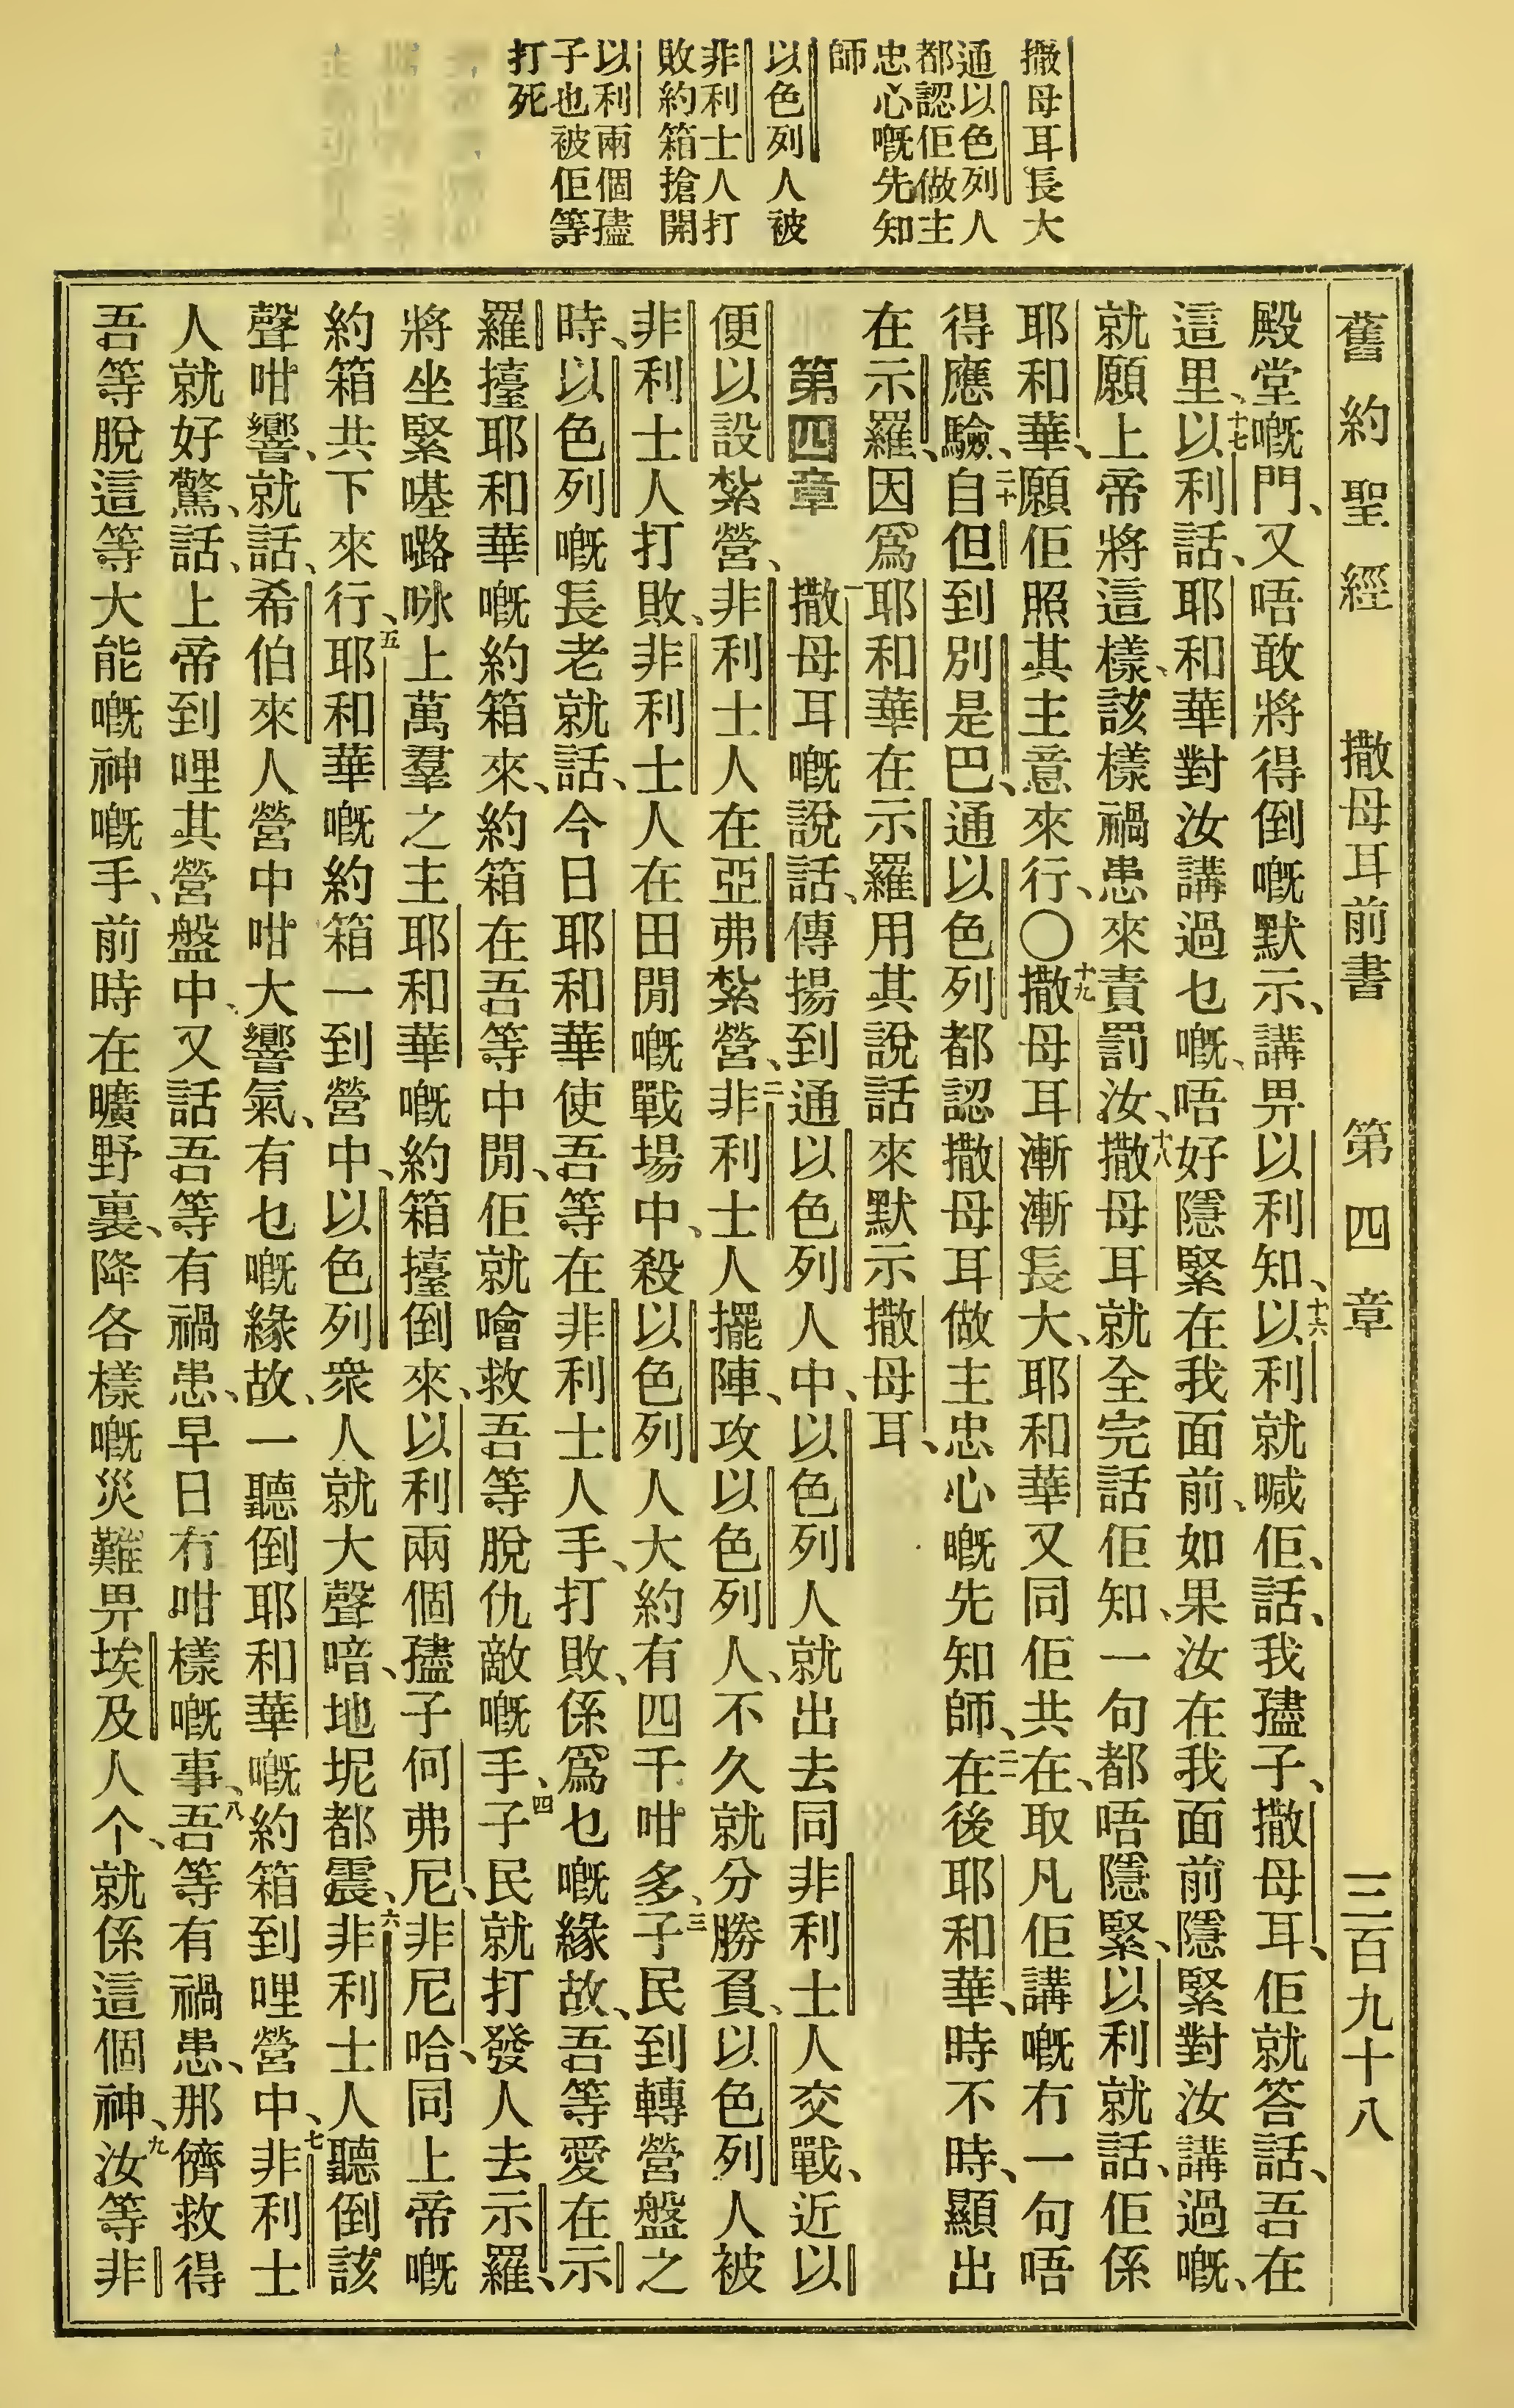 撒母耳長大
通以色列人
都認佢做主
忠心嘅先知
師
以色列人被
非利士人打
敗約箱搶開
以利兩個孻
子也被佢等
打死
舊約聖經 撒母耳前書 第四章 三百九十八
殿堂嘅門、又唔敢將得倒嘅默示、講畀以利知、十六以利就喊佢、話、我孻子、撒母耳、佢就答話、吾在
這里、十七以利話、耶和華對汝講過乜嘅、唔好隱緊在我面前、如果汝在我面前隱緊對汝講過嘅、
就願上帝將這樣、該樣禍患來責罰汝、十八撒母耳就全完話佢知、一句都唔隱緊、以利就話、佢係
耶和華、願佢照其主意來行、〇十九撒母耳漸漸長大、耶和華又同佢共在、取凡佢講嘅冇一句唔
得應驗、二十自但到別是巴、通以色列都認撒母耳做主忠心嘅先知師、二一在後耶和華、時不時、顯出
在示羅、因爲耶和華在示羅用其說話來默示撒母耳、
第四章 一撒母耳嘅說話、傳揚到通以色列人中、以色列人就出去同非利士人交戰、近以
便以設紮營、非利士人在亞弗紮營、二非利士人擺陣、攻以色列人、不久就分勝負、以色列人被
非利士人打敗、非利士人在田閒嘅戰場中、殺以色列人大約有四千咁多、三子民到轉營盤之
時、以色列嘅長老就話、今日耶和華使吾等在非利士人手、打敗、係爲乜嘅緣故、吾等愛在示
羅擡耶和華嘅約箱來、約箱在吾等中閒、佢就噲救吾等脫仇敵嘅手、四子民就打發人去示羅、
將坐緊𠼻嚕咏上萬羣之主耶和華嘅約箱擡倒來、以利兩個孻子何弗尼、非尼哈、同上帝嘅
約箱共下來行、五耶和華嘅約箱一到營中、以色列衆人就大聲喑、地坭都震、六非利士人聽倒該
聲咁響、就話、希伯來人營中咁大響氣、有乜嘅緣故、一聽倒耶和華嘅約箱到哩營中、七非利士
人就好驚、話、上帝到哩其營盤中、又話吾等有禍患、早日冇咁樣嘅事、八吾等有禍患、那儕救得
吾等脫這等大能嘅神嘅手、前時在曠野裏、降各樣嘅災難畀埃及人个、就係這個神、九汝等非